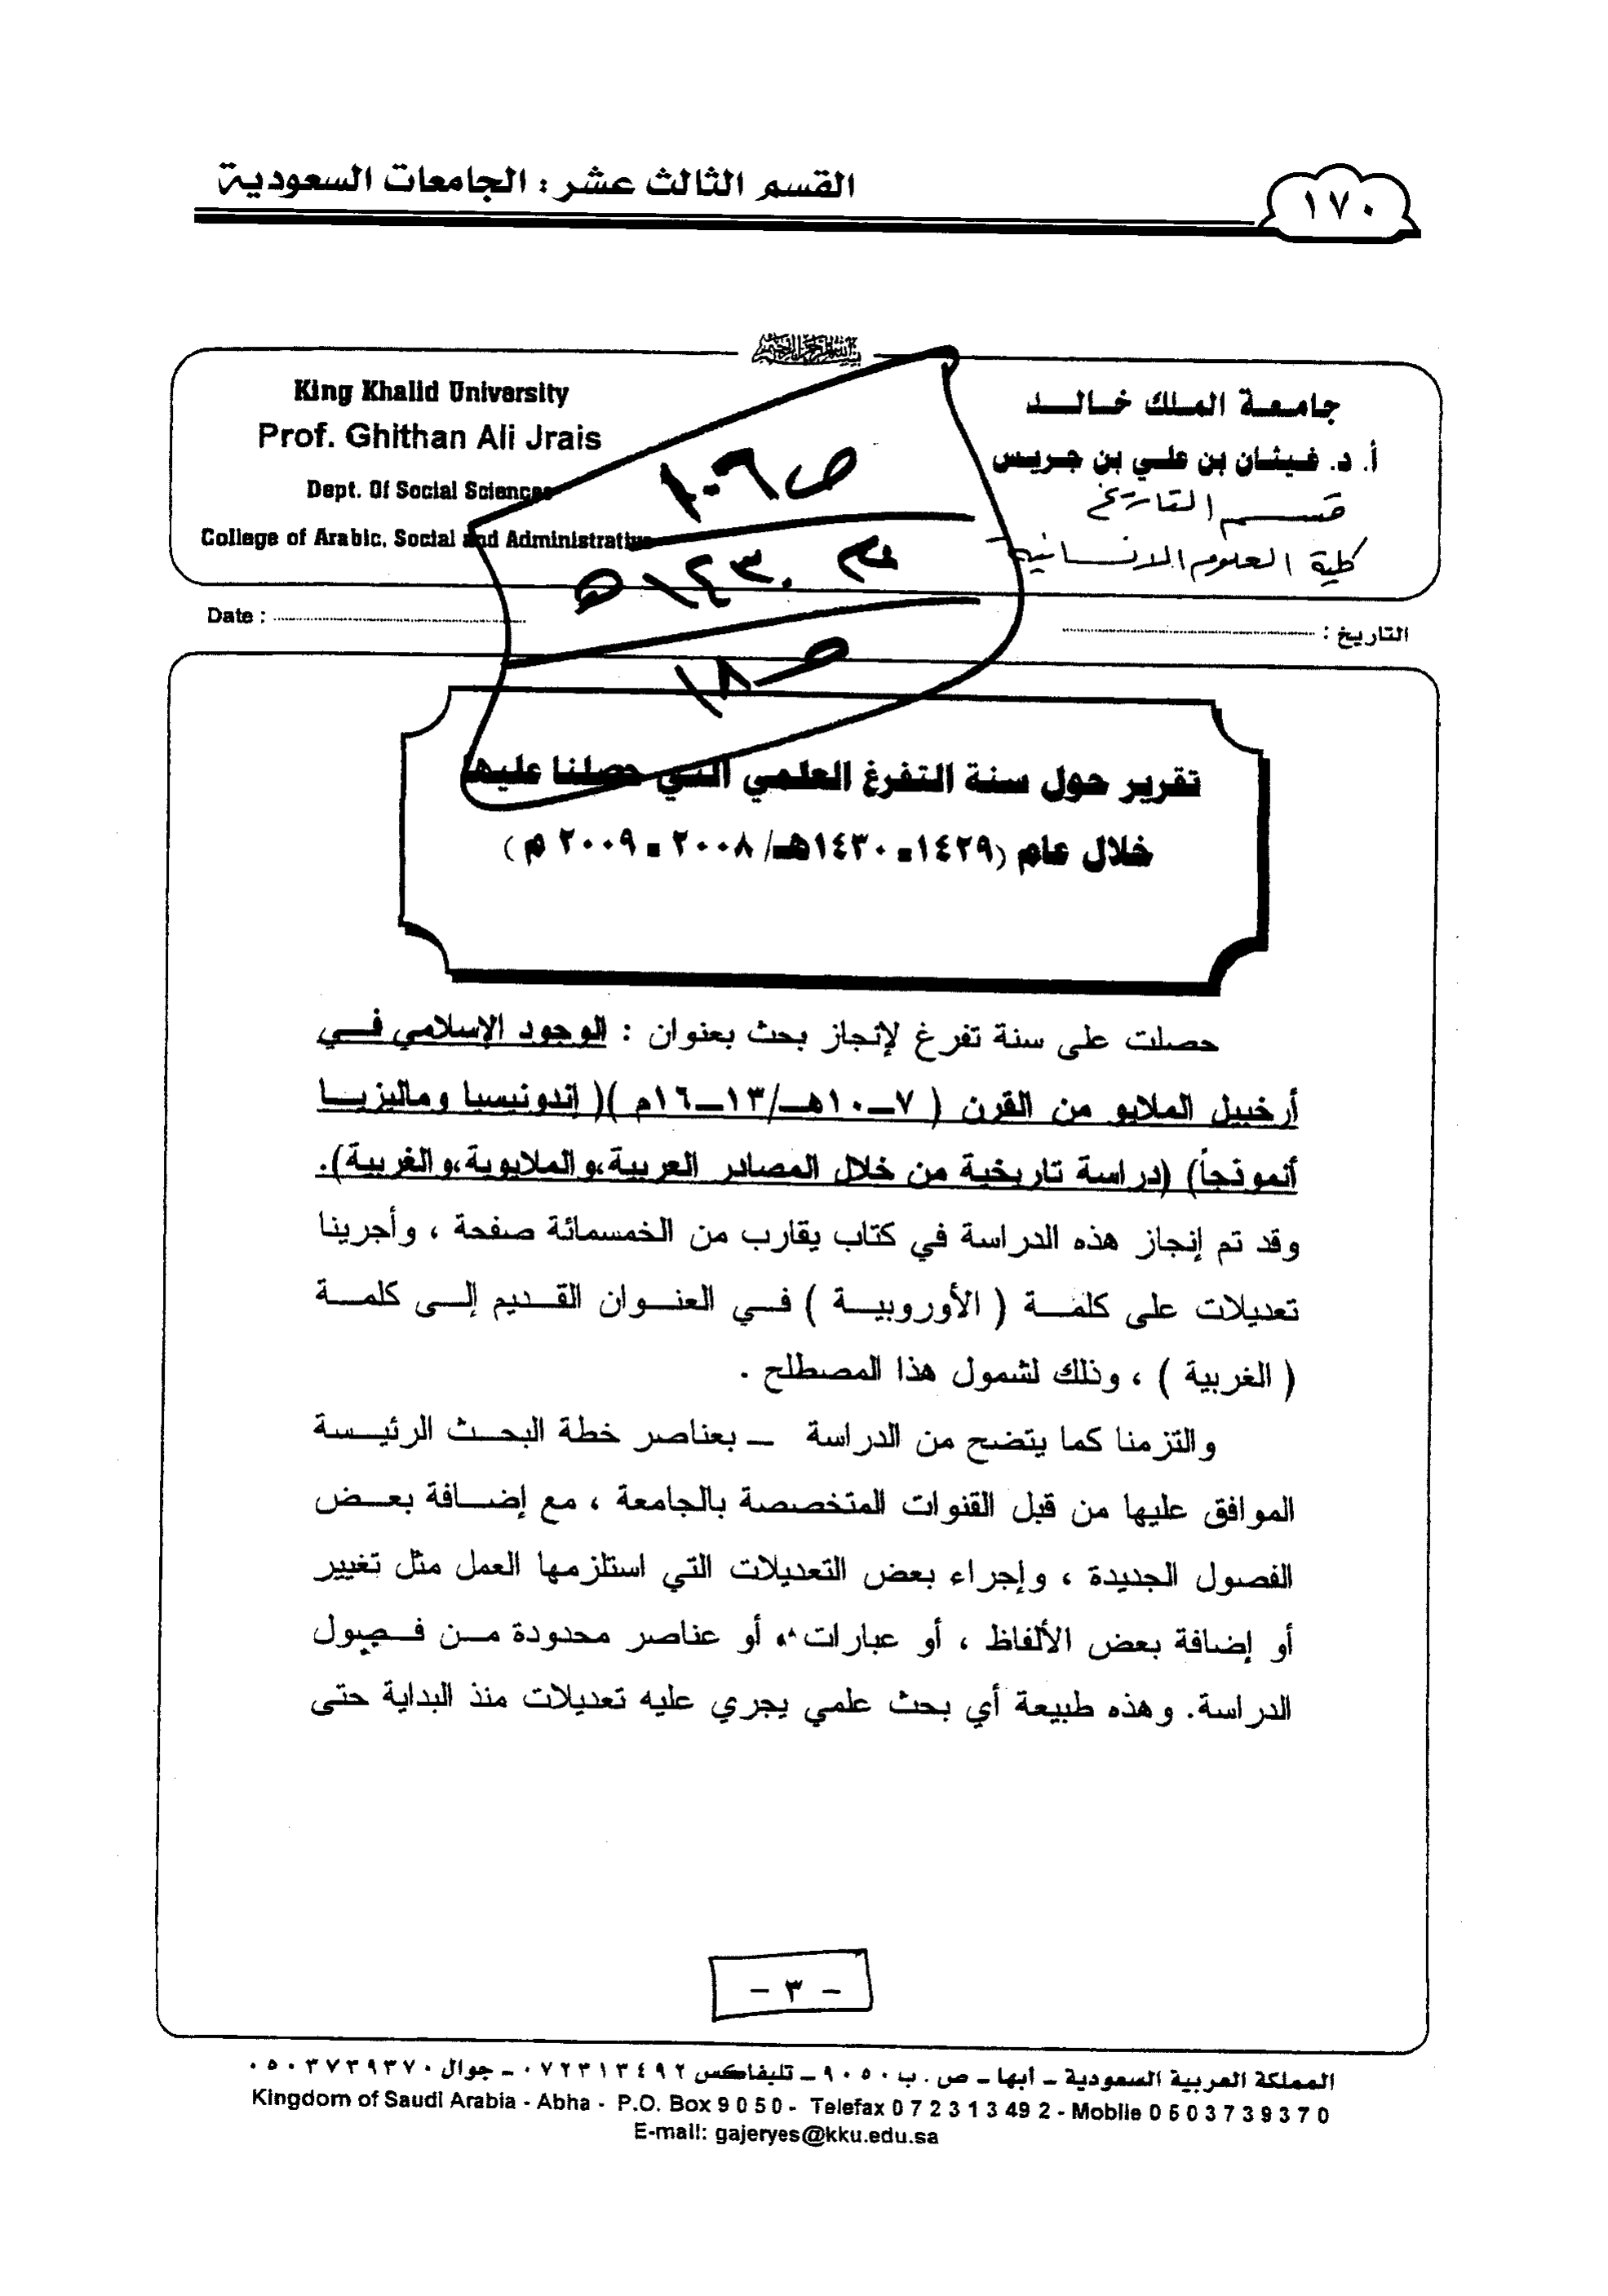 القسم الثالث عشر : الجامعات السعودية
١٧٠
جامعة الملك خالد
أ. د. غيثان بن علي بن جريس
قسم التاريخ
كلية العلوم الانسانية
King Khalid University
Prof. Ghithan Ali Jrais
Dept. Of Social Sciences
College of Arabic, Social and Administrative
ص ١٠٦
١٤٣٠هـ
ص ١٨
التاريخ :
Date :
تقرير حول سنة التفرغ العلمي التي حصلنا عليها
خلال عام (١٤٢٩-١٤٣٠هـ/ ٢٠٠٨ - ٢٠٠٩ م)
حصلت على سنة تفرغ لإنجاز بحث بعنوان : الوجود الإسلامي في
أرخبيل الملايو من القرن ( ٧-١٠هـ/١٣-١٦م )( إندونيسيا وماليزيا
أنموذجاً) (دراسة تاريخية من خلال المصادر العربية،والملايوية،والغربية).
وقد تم إنجاز هذه الدراسة في كتاب يقارب من الخمسمائة صفحة ، وأجرينا
تعديلات على كلمة ( الأوروبية ) في العنوان القديم إلى كلمة
( الغربية ) ، وذلك لشمول هذا المصطلح .
والتزمنا كما يتضح من الدراسة – بعناصر خطة البحث الرئيسة
الموافق عليها من قبل القنوات المتخصصة بالجامعة ، مع إضافة بعض
الفصول الجديدة ، وإجراء بعض التعديلات التي استلزمها العمل مثل تغيير
أو إضافة بعض الألفاظ ، أو عبارات ، أو عناصر محدودة من فصول
الدراسة. وهذه طبيعة أي بحث علمي يجري عليه تعديلات منذ البداية حتى
- ٣ -
المملكة العربية السعودية - أبها - ص . ب ٩٠٥٠ - تليفاكس ٠٧٢٣١٣٤٩٢ - جوال ٠٥٠٣٧٣٩٣٧٠
Kingdom of Saudi Arabia - Abha - P.O. Box 9 0 5 0 - Telefax 0 7 2 3 1 3 49 2 - Mobile 0 5 0 3 7 3 9 3 7 0
E-mail: gajeryes@kku.edu.sa